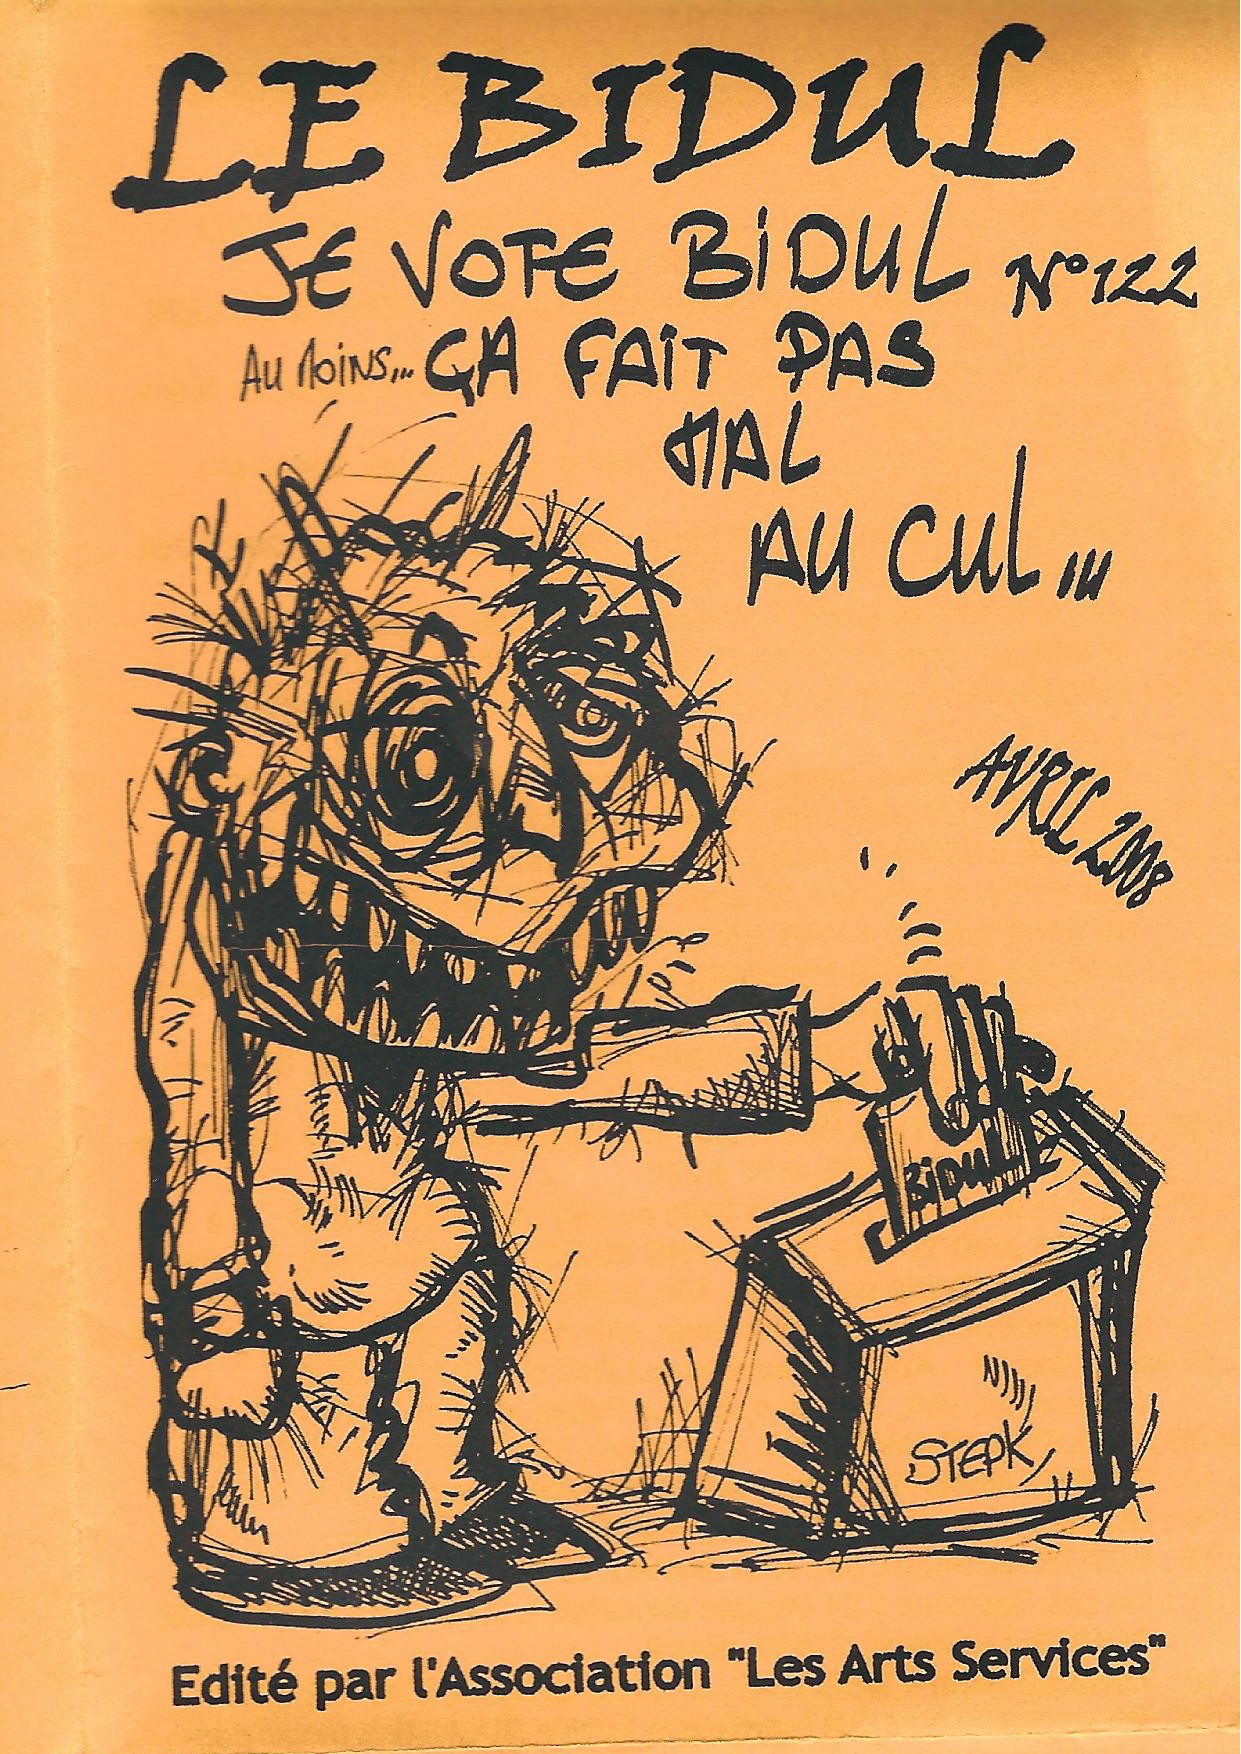 LE BIDUL
JE VOTE BIDUL N°122
AU MOINS... ÇA FAIT PAS
MAL
AU CUL...
AVRIL 2008
BIDUL
STEPK
Edité par l'Association "Les Arts Services"